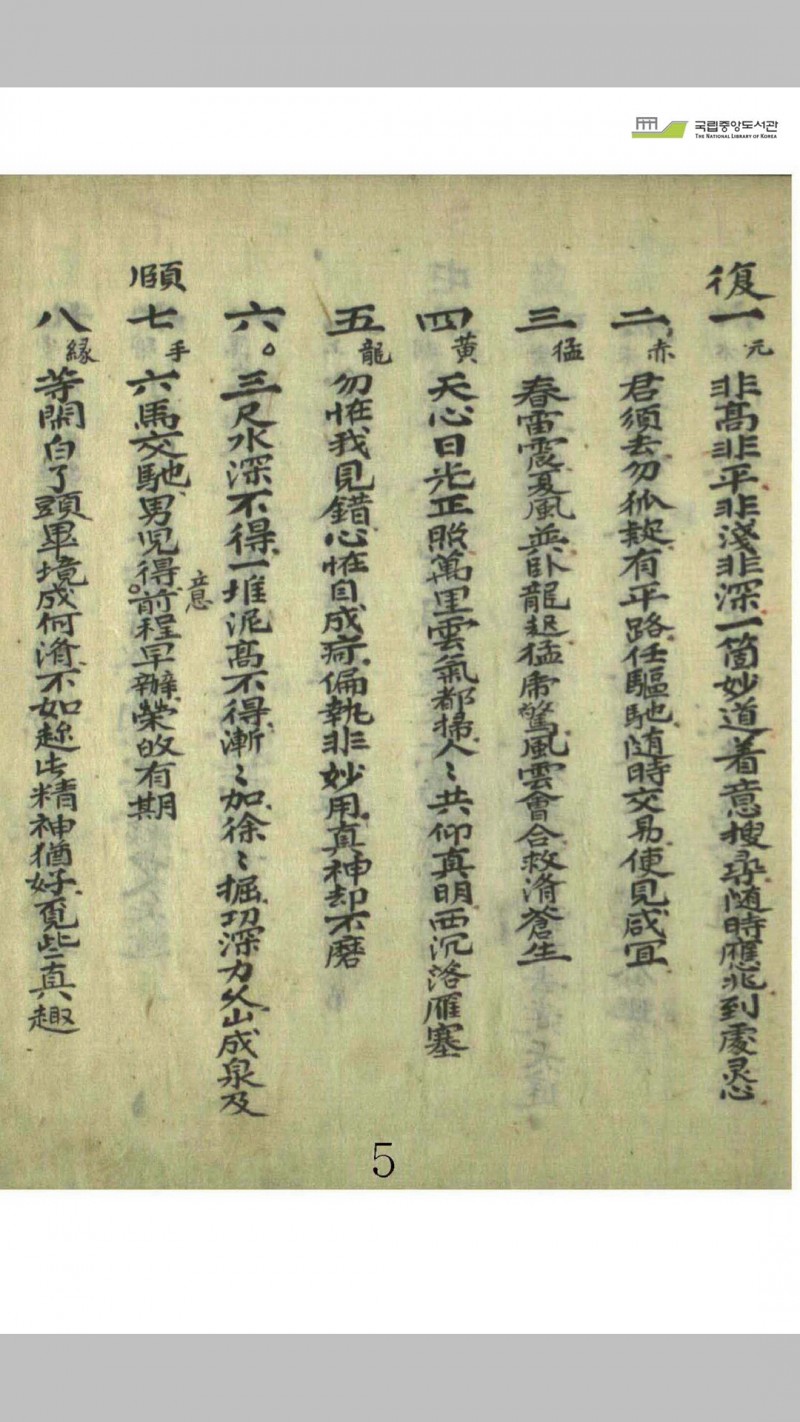 국립중앙도서관
THE NATIONAL LIBRARY OF KOREA
復
一 元 非高非平非淺非深一箇妙道着意搜尋随時應兆到處灵
二 赤 君須去勿狐疑有平路任驅馳随時交易使見咸冝
三 猛 春雷震夏風並卧龍起猛虎驚風雲會合救済蒼生
四 黄 天心日光正照萬里雲氣都掃人〻共仰真明西沉洛雁塞
五 龍 勿怪我見錯心怪自成疴偏執非妙用真神却不磨
六 。 三尺水深不得一堆泥高不得漸〻加徐〻掘功深力久山成泉及
頤
七 手 六馬交馳男児得意前程早辦榮故有期
八 縁 等閑白了頭畢境成何済不如趂此精神猶好覓些真趣
5